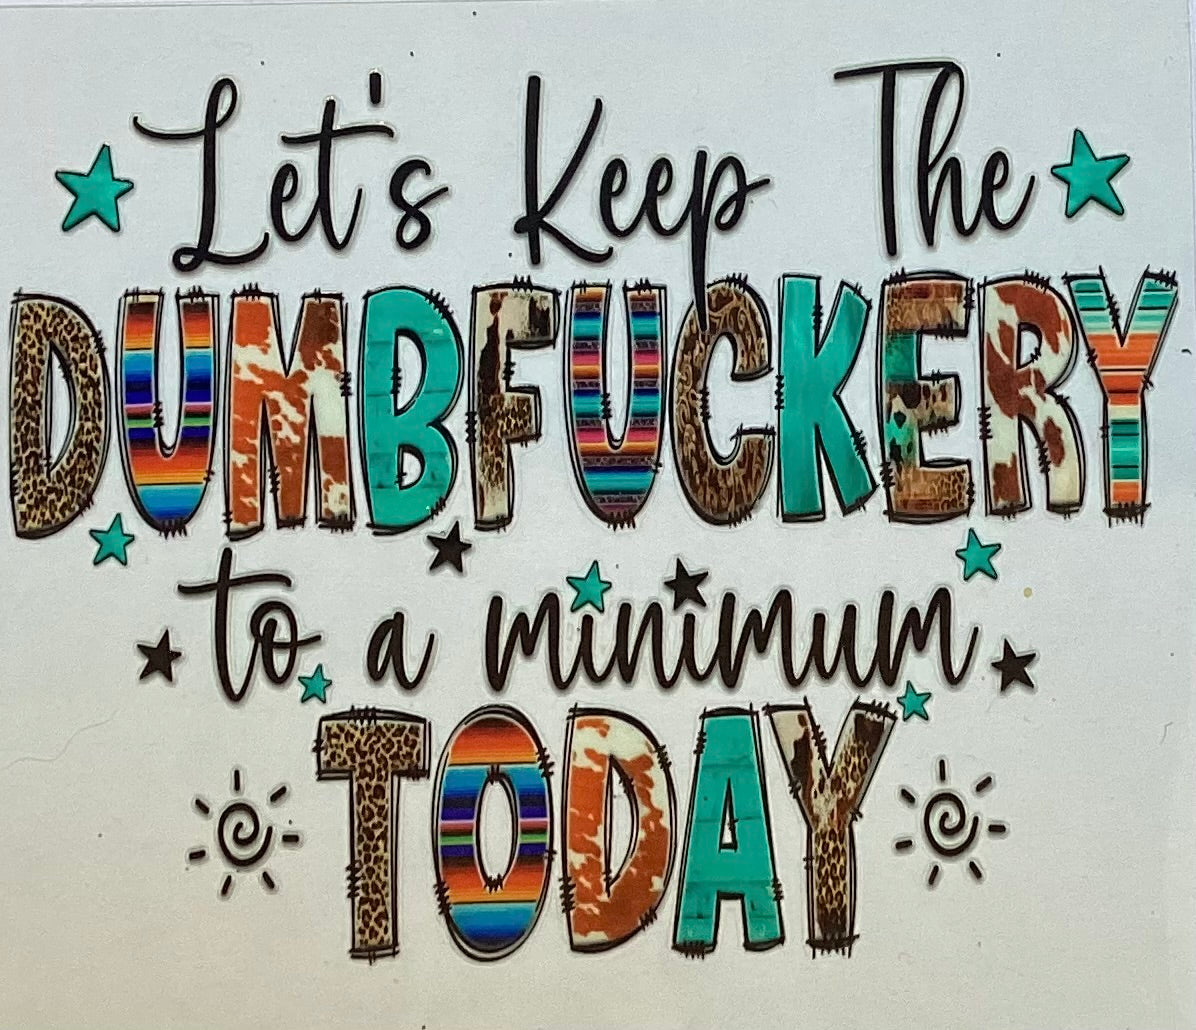 Let's Keep The
DUMBFUCKERY
to a minimum
TODAY